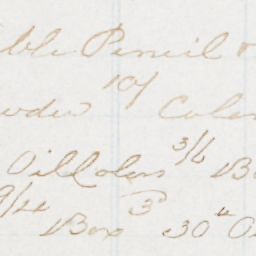 ble Pencil
10/
Colo
Oil Colors 3/6 B
9/4 Box 3 30" O